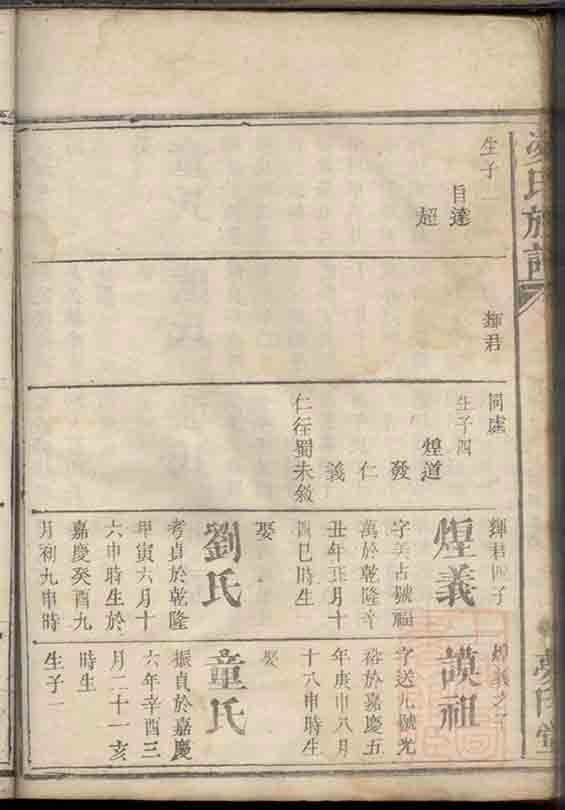 氏族譜
生子一
自達
超
輝君
同處
生子四
煌道
發
仁
義
仁往蜀未敘
輝君四子
煌義
字美占號福
萬於乾隆辛
丑年五月十
四巳時生
娶
劉氏
考貞於乾隆
甲寅六月十
六申時生於
嘉慶癸酉九
月初九申時
煌義之子
謨祖
字送九號光
裕於嘉慶五
年庚申八月
十八申時生
娶
童氏
振貞於嘉慶
六年辛酉三
月二十一亥
時生
生子一